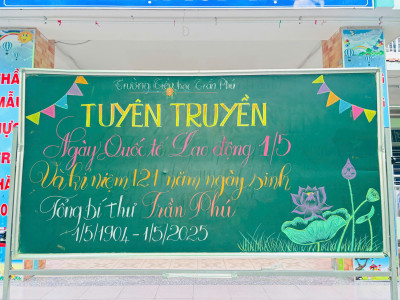 Trường Tiểu học Trần Phú
TUYÊN TRUYỀN
Ngày Quốc tế Lao động 1/5
Và kỷ niệm 121 năm ngày sinh
Tổng bí thư Trần Phú
1/5/1904 - 1/5/2025